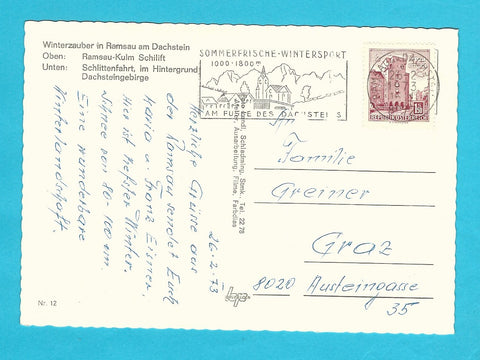 Winterzauber in Ramsau am Dachstein
Oben: Ramsau-Kulm Schilift
Unten: Schlittenfahrt, im Hintergrund
Dachsteingebirge
SOMMERFRISCHE-WINTERSPORT
1000-1800m
AM FUSSE DES DACHSTEINS
REPUBLIK ÖSTERREICH
26.2.73
Herzliche Grüße aus
der Ramsau sendet Euch
Maria u. Franz Eisner.
Hier ist tiefster Winter.
Schnee von 80-100 cm
Eine wunderbare
Winterlandschaft.
Schladming, Stmk., Tel. 22 78
Ausarbeitung, Filme, Farbdias
An
Familie
Greiner
Graz
8020 Austeingasse
35
Nr. 12